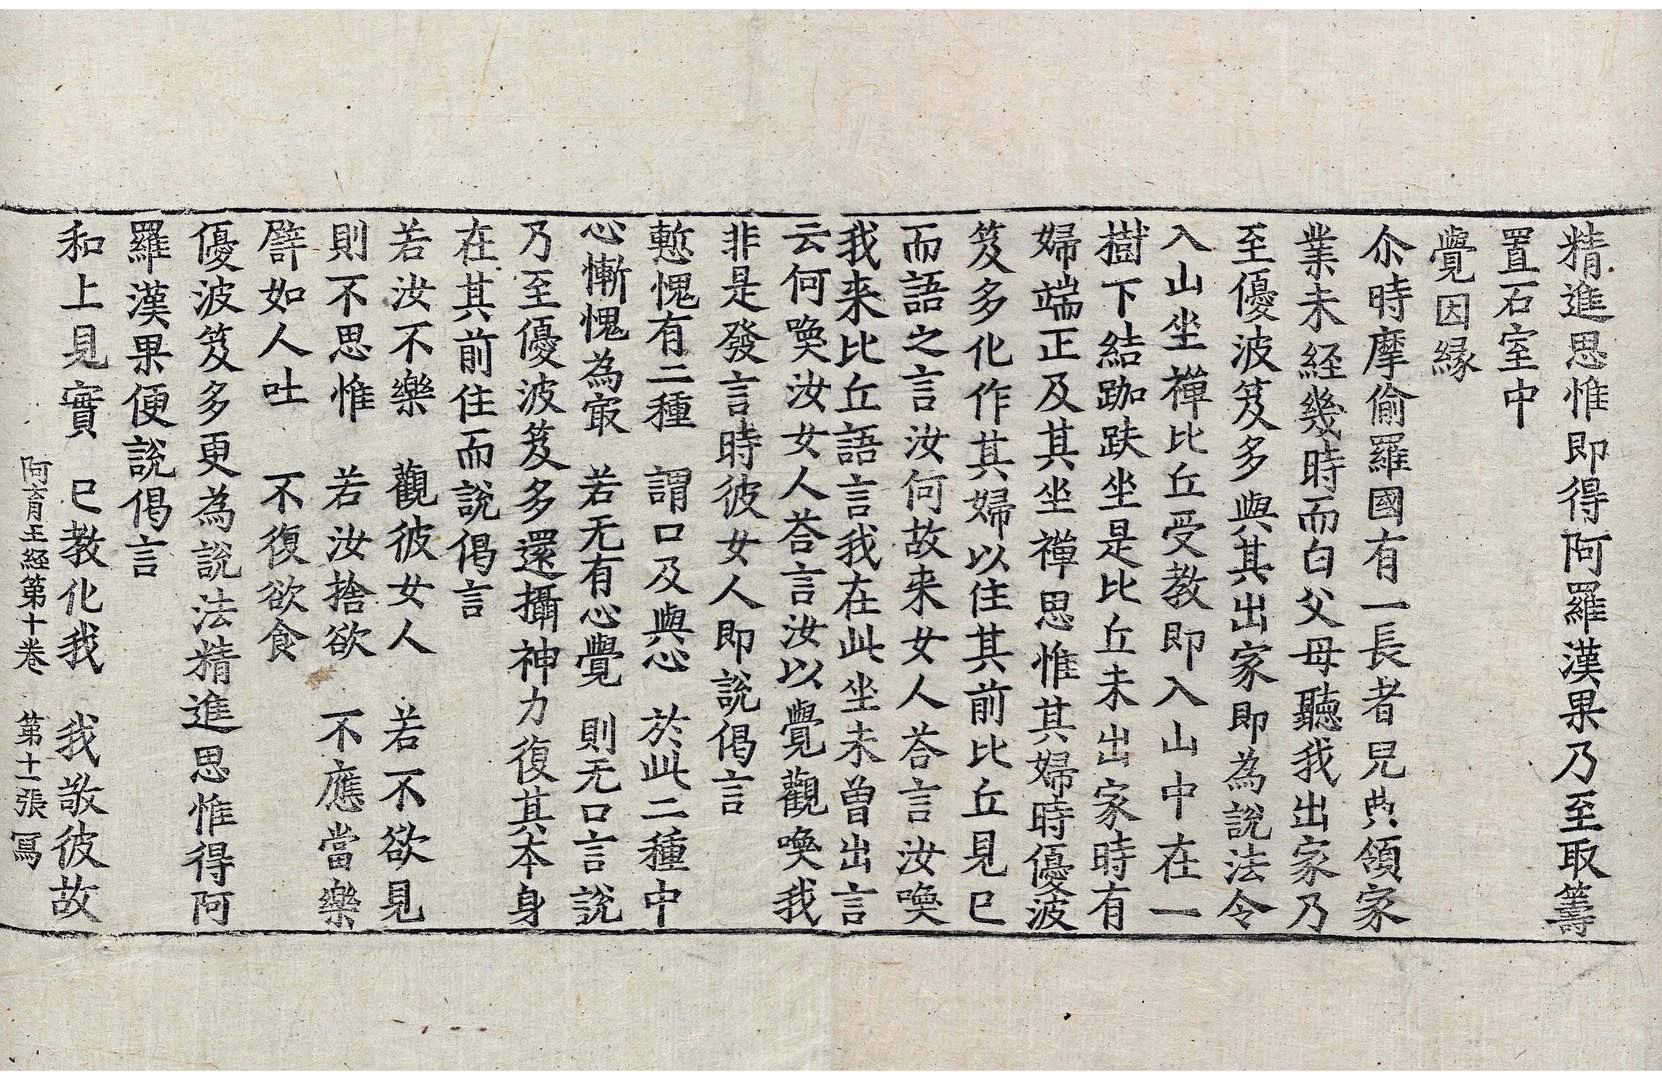 精進思惟即得阿羅漢果乃至取籌
置石室中
覺因縁
尒時摩偷羅國有一長者兒典領家
業未經幾時而白父母聽我出家乃
至優波笈多與其出家即為說法令
入山坐禪比丘受教即入山中在一
樹下結跏趺坐是比丘未出家時有
婦端正及其坐禪思惟其婦時優波
笈多化作其婦以住其前比丘見已
而語之言汝何故来女人荅言汝喚
我来比丘語言我在此坐未曾出言
云何喚汝女人荅言汝以覺觀喚我
非是發言時彼女人即說偈言
慙愧有二種　謂口及與心　於此二種中
心慚愧為㝡　若无有心覺　則无口言說
乃至優波笈多還攝神力復其本身
在其前住而說偈言
若汝不樂　觀彼女人　若不欲見
則不思惟　若汝捨欲　不應當樂
譬如人吐　不復欲食
優波笈多更為說法精進思惟得阿
羅漢果便說偈言
和上見實　已教化我　我敬彼故
阿育王經第十卷　第十一張　冩